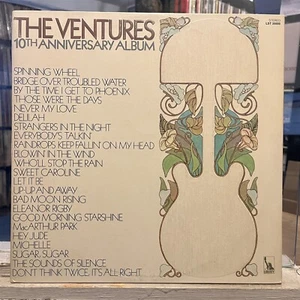 THE VENTURES
10TH ANNIVERSARY ALBUM
SPINNING WHEEL
BRIDGE OVER TROUBLED WATER
BY THE TIME I GET TO PHOENIX
THOSE WERE THE DAYS
NEVER MY LOVE
DELILAH
STRANGERS IN THE NIGHT
EVERYBODY'S TALKIN'
RAINDROPS KEEP FALLIN' ON MY HEAD
BLOWIN' IN THE WIND
WHO'LL STOP THE RAIN
SWEET CAROLINE
LET IT BE
UP UP AND AWAY
BAD MOON RISING
ELEANOR RIGBY
GOOD MORNING STARSHINE
MacARTHUR PARK
HEY JUDE
MICHELLE
SUGAR, SUGAR
THE SOUNDS OF SILENCE
DON'T THINK TWICE, IT'S ALL RIGHT